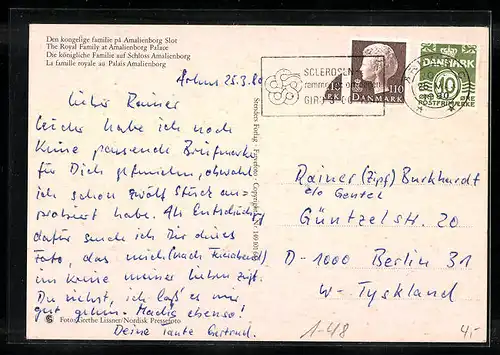 Den kongelige familie på Amalienborg Slot
The Royal Family at Amalienborg Palace
Die königliche Familie auf Schloss Amalienborg
La famille royale au Palais Amalienborg
Århus 25.3.80
Lieber Rainer
leider habe ich noch
keine passende Briefmarke
für Dich gefunden, obwohl
ich schon zwölf Stück an-
probiert habe. Als Entschädig.
dafür sende ich Dir dieses
Foto, das mich (nach Feierabend)
im Kreise meiner Lieben zeigt.
Du siehst, ich laß es mir
gut gehen. Machs ebenso!
Deine Tante Gertrud.
Foto: Gerthe Lissner/Nordisk Pressefoto
Stenders Forlag
Copyright
SCLEROSE
rammer
GIRO
110 110
DANMARK
DANMARK
ØRE ØRE
POSTFRIMÆRKE
Rainer (Zipf) Burkhardt
c/o Gentel
Güntzelstr. 20
D-1000 Berlin 31
W-Tyskland
1-48
4,-